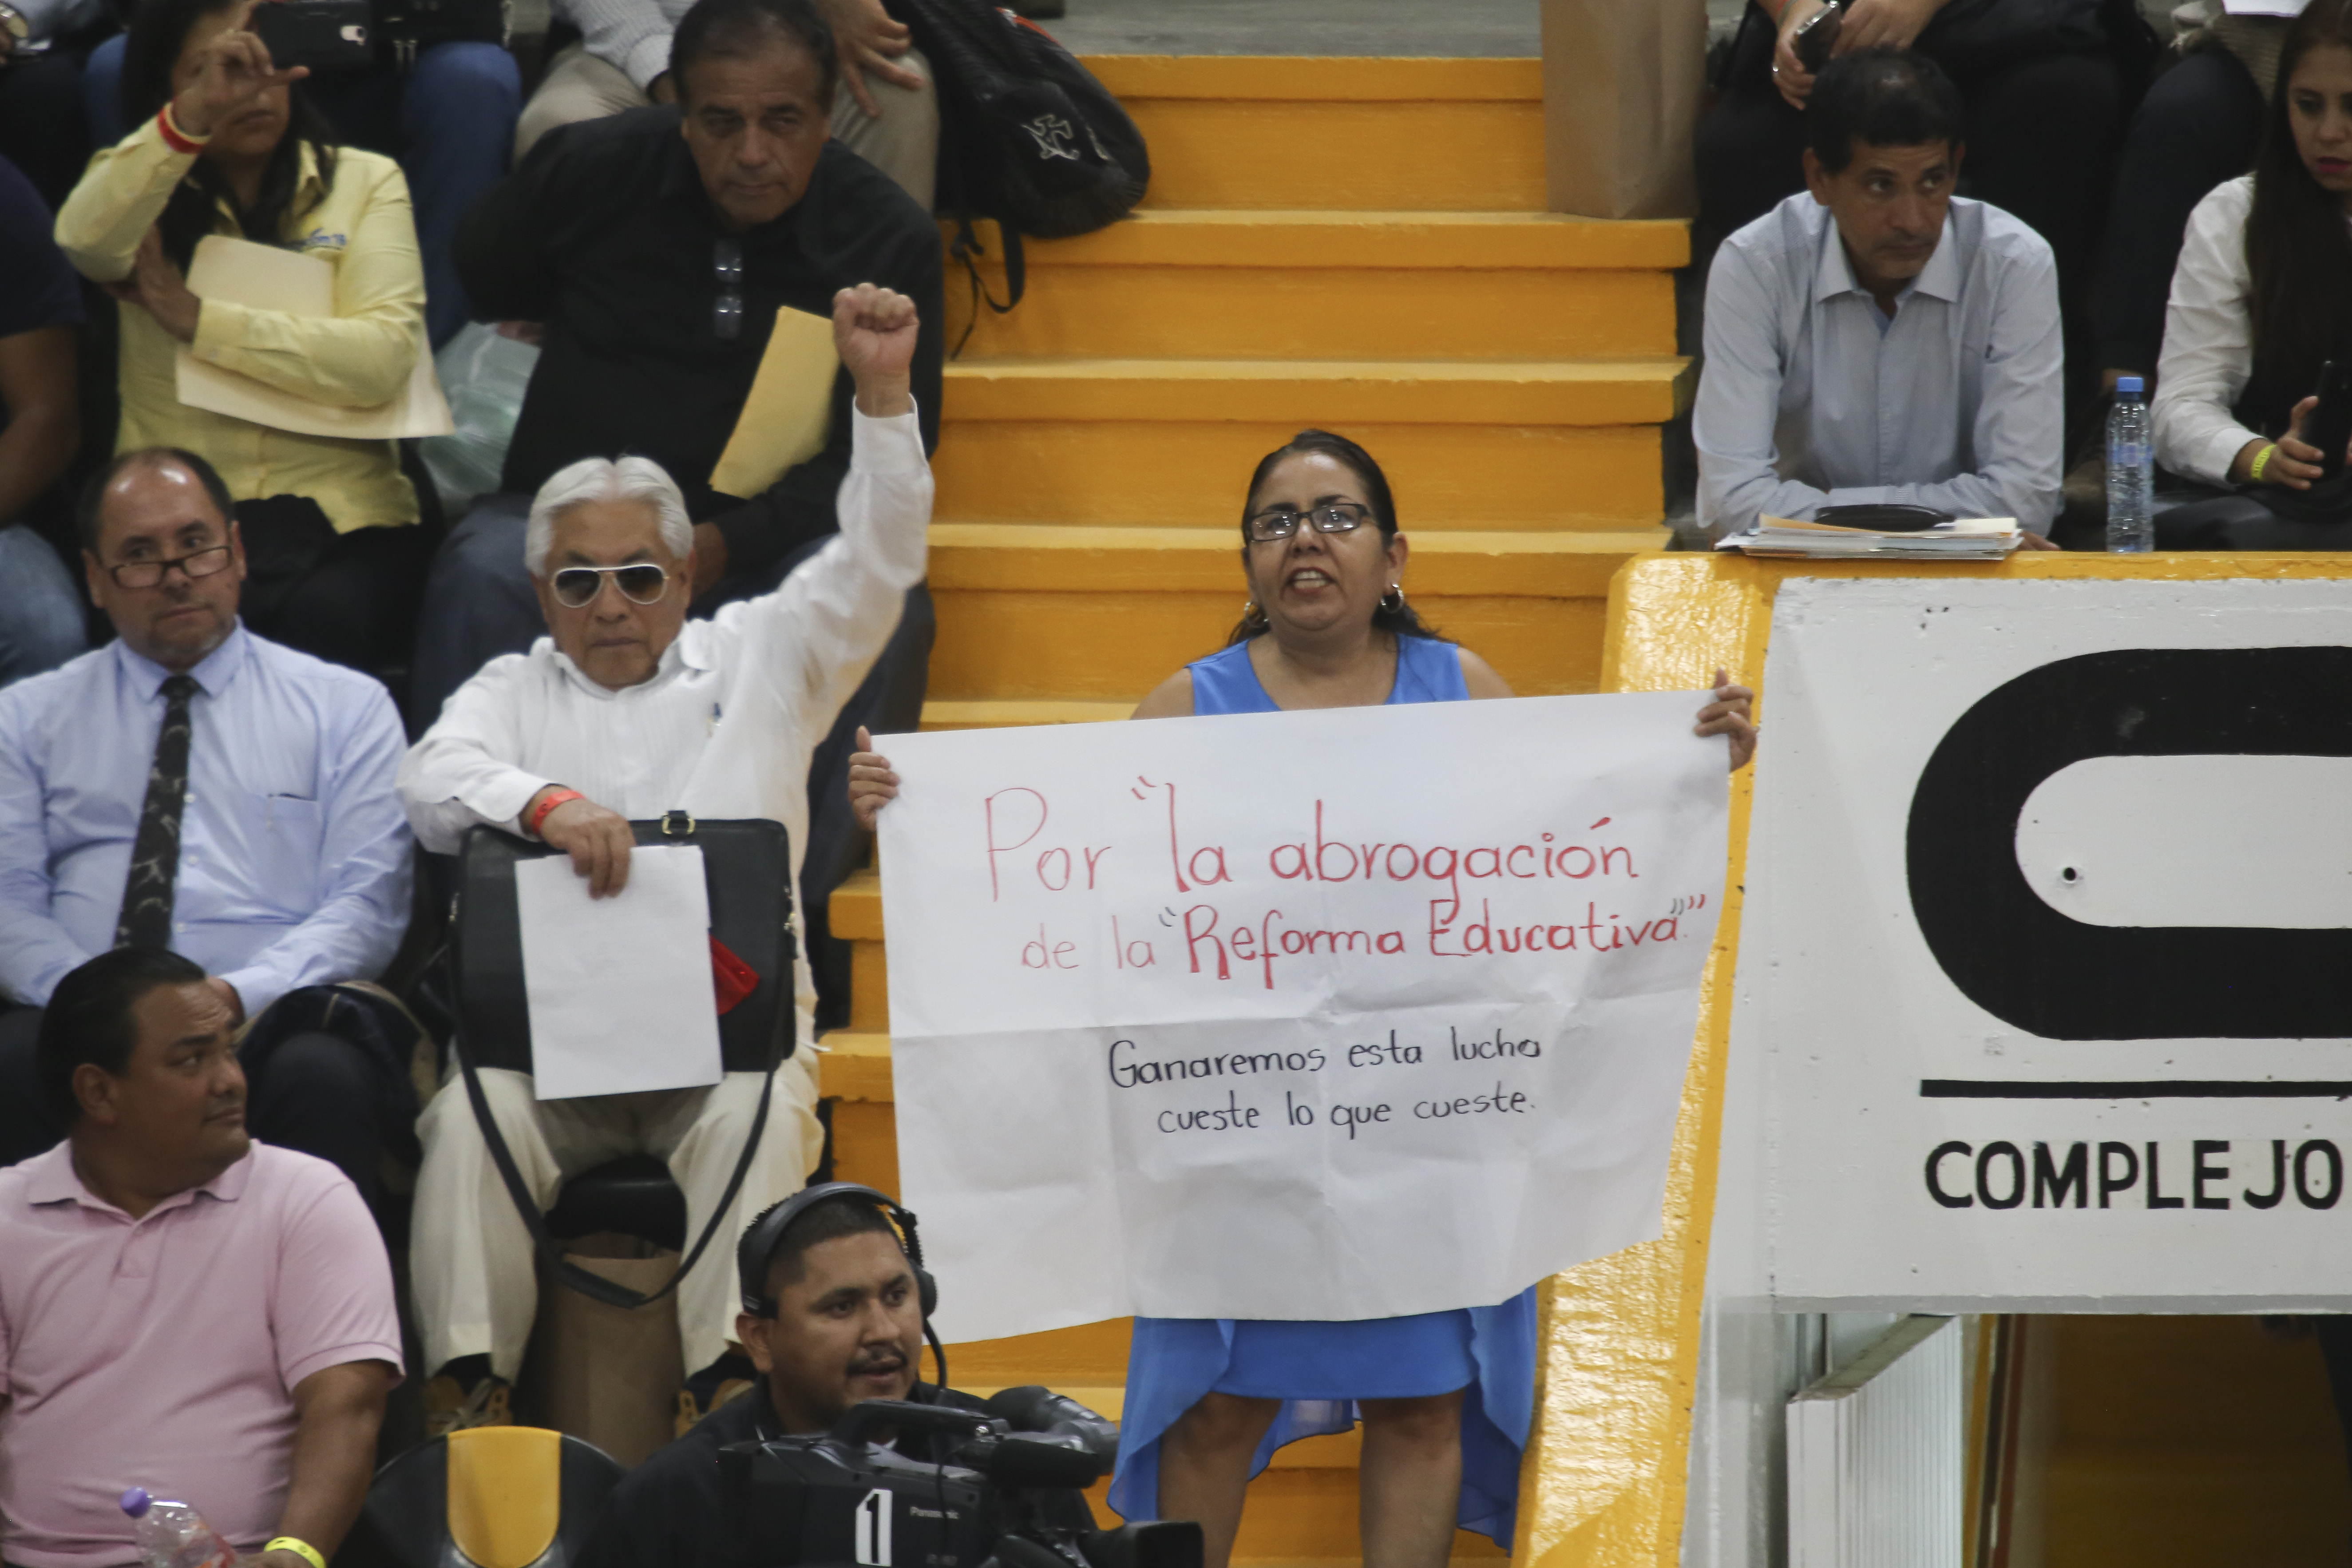 Por "la abrogación
de la "Reforma Educativa"."
Ganaremos esta lucha
cueste lo que cueste.
COMPLEJO
1
Panasonic